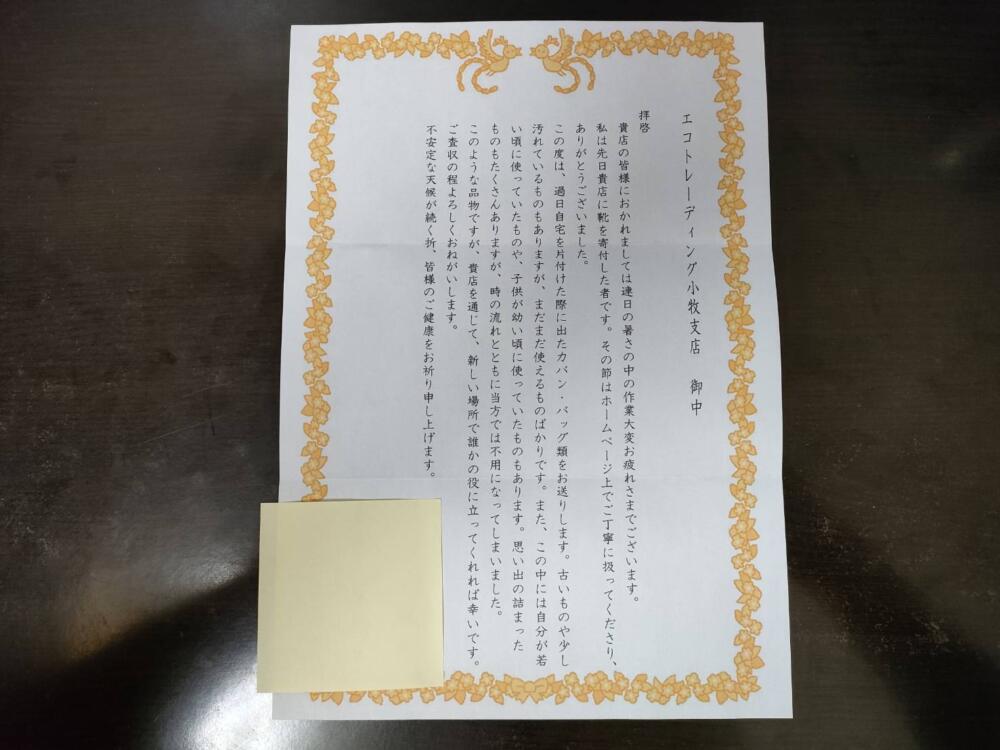 エコトレーディング小牧支店　御中
拝啓
貴店の皆様におかれましては連日の暑さの中の作業大変お疲れさまでございます。
私は先日貴店に靴を寄付した者です。その節はホームページ上でご丁寧に扱ってくださり、
ありがとうございました。
この度は、過日自宅を片付けた際に出たカバン・バッグ類をお送りします。古いものや少し
汚れているものもありますが、まだまだ使えるものばかりです。また、この中には自分が若
い頃に使っていたものや、子供が幼い頃に使っていたものもあります。思い出の詰まった
ものもたくさんありますが、時の流れとともに当方では不用になってしまいました。
このような品物ですが、貴店を通じて、新しい場所で誰かの役に立ってくれれば幸いです。
ご査収の程よろしくおねがいします。
不安定な天候が続く折、皆様のご健康をお祈り申し上げます。